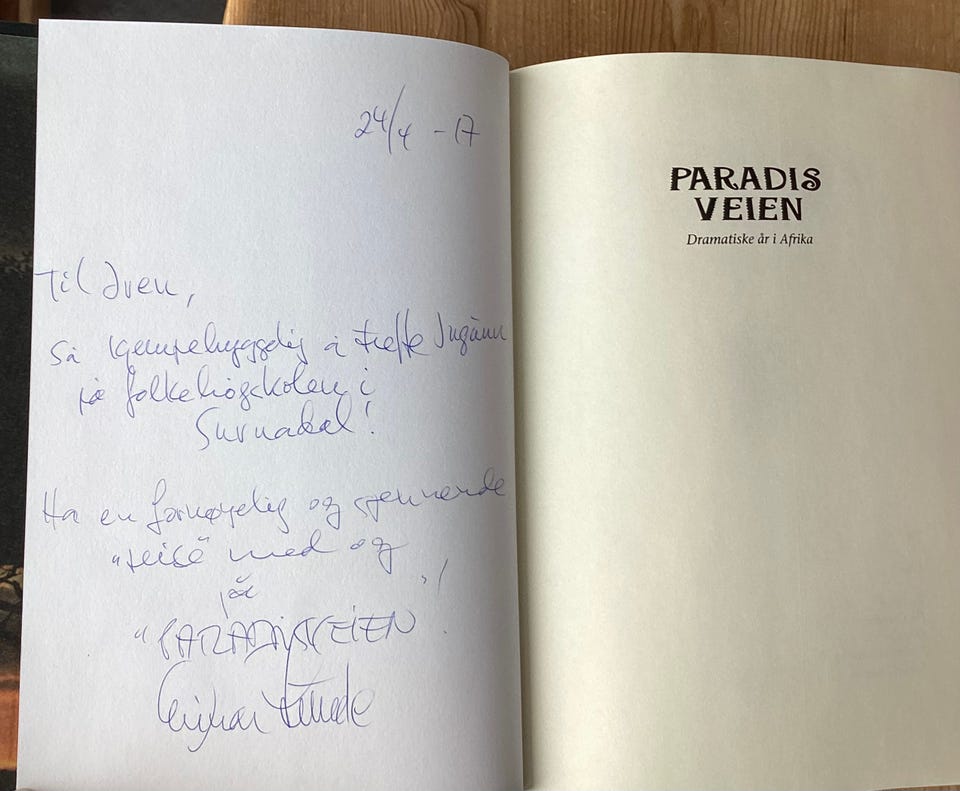 24/4 - 17
Til Iven,
Så kjempehyggelig å treffe Ingunn
på folkehøgskolen i
Surnadal!
Ha en fornøyelig og spennende
"reise" med og
på
"PARADISVEIEN"!
PARADIS
VEIEN
Dramatiske år i Afrika